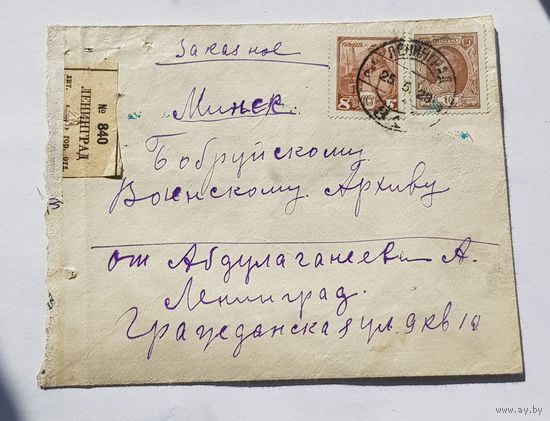 Заказное
1918-1928
8
ЛЕНИНГРАД
25.5.28
№ 840
ЛЕНИНГРАД
Минск.
Бобруйскому
Военскому Архиву
от Абдулаганеева А.
Ленинград.
Гражданская ул. 9 кв 10
www.ay.by